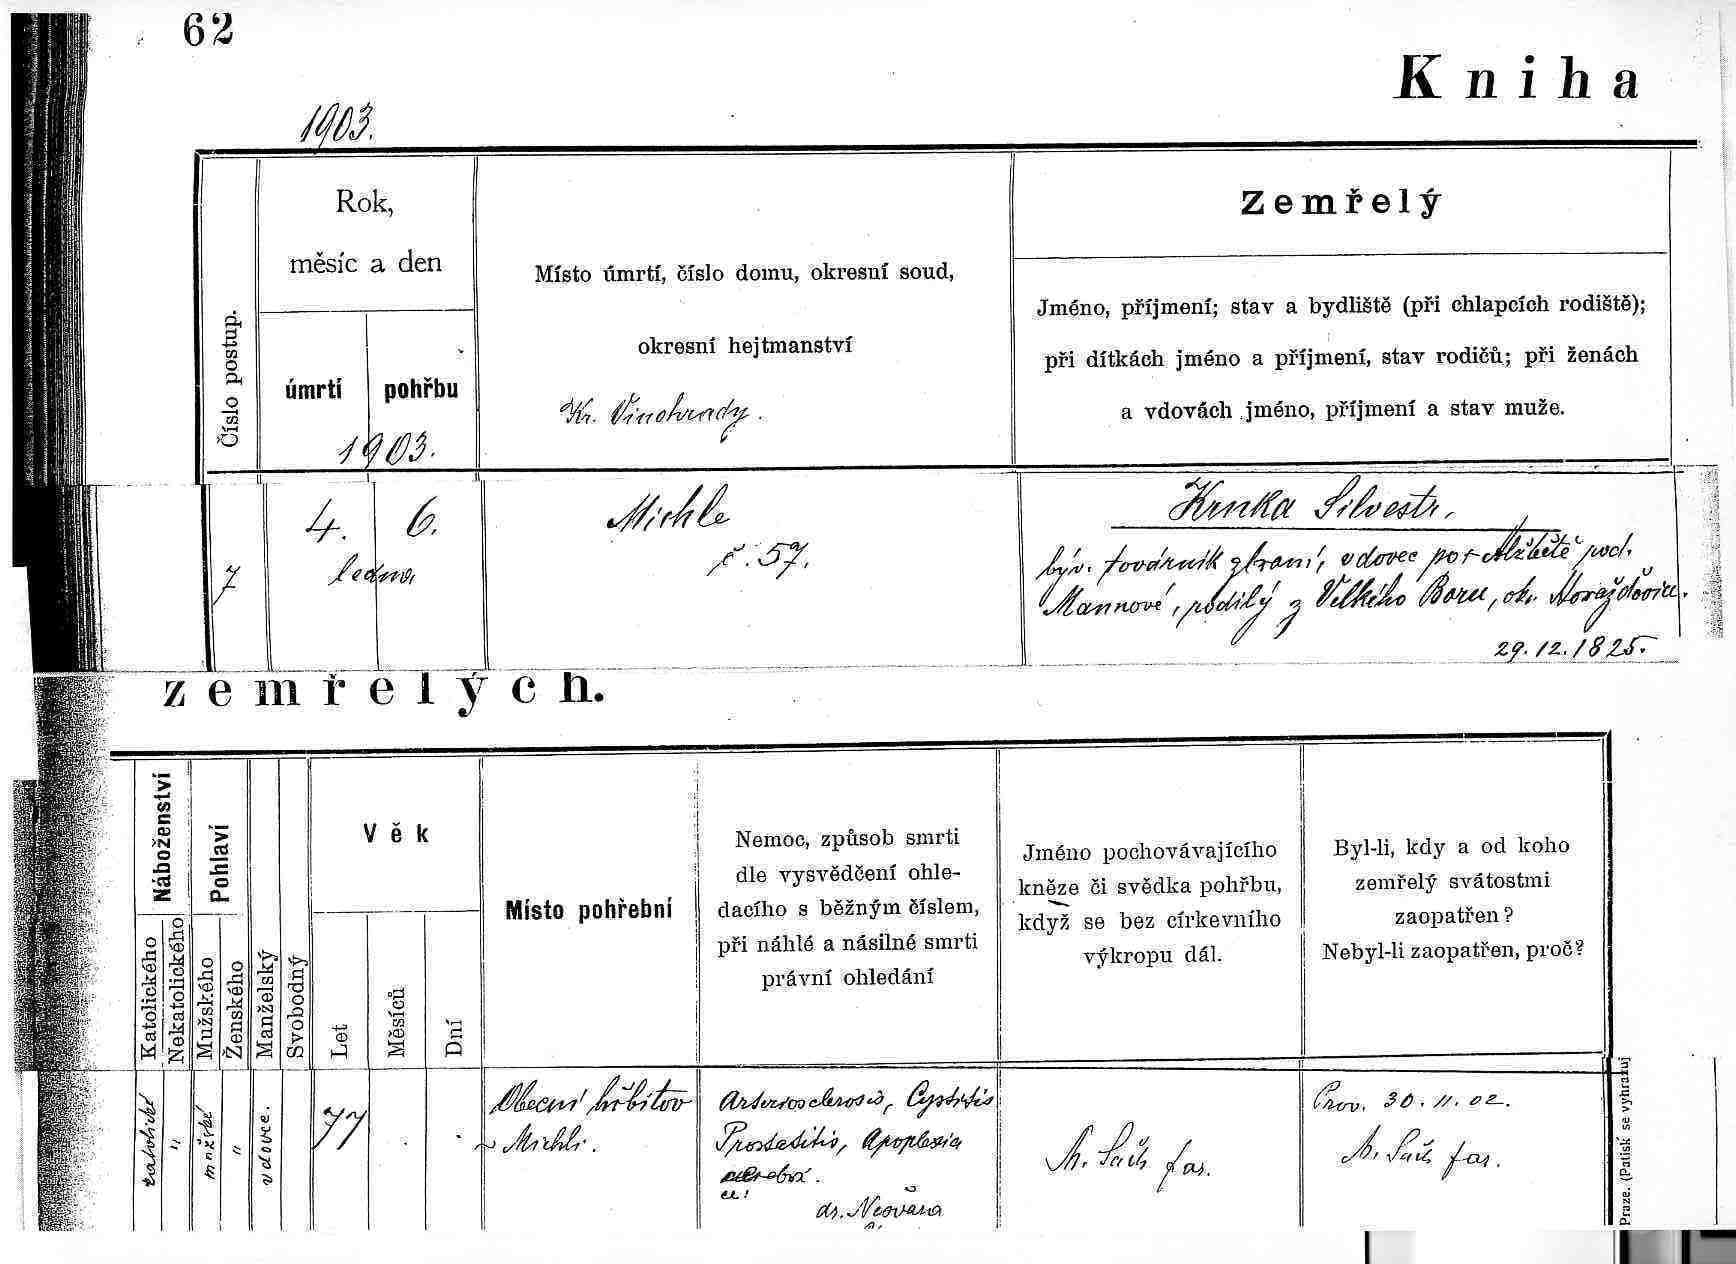 62
Kniha
1903.
Číslo postup.
Rok,
měsíc a den
úmrtí
pohřbu
1903.
Místo úmrtí, číslo domu, okresní soud,
okresní hejtmanství
Kr. Vinohrady.
Zemřelý
Jméno, příjmení; stav a bydliště (při chlapcích rodiště);
při dítkách jméno a příjmení, stav rodičů; při ženách
a vdovách jméno, příjmení a stav muže.
7
4.
6.
ledna
Michle
č. 57.
Krnka Silvestr,
býv. továrník zbraní, vdovec po † Alžbětě roz.
Mannové, rodilý z Velkého Boru, okr. Horažďovice.
29.12.1825.
zemřelých.
Náboženství
Katolického
Nekatolického
Pohlaví
Mužského
Ženského
Manželský
Svobodný
Věk
Let
Měsíců
Dní
Místo pohřební
Nemoc, způsob smrti
dle vysvědčení ohle-
dacího s běžným číslem,
při náhlé a násilné smrti
právní ohledání
Jméno pochovávajícího
kněze či svědka pohřbu,
když se bez církevního
výkropu dál.
Byl-li, kdy a od koho
zemřelý svátostmi
zaopatřen?
Nebyl-li zaopatřen, proč?
katolické
"
mužské
"
vdovec.
77
.
.
Obecní hřbitov
v Michli.
Arteriosclerosis, Cystitis
Prostatitis, Apoplexia
cerebri.
dr.
far.
Prov. 30.11.02.
far.
Praze. (Patisk se vyhrazuj